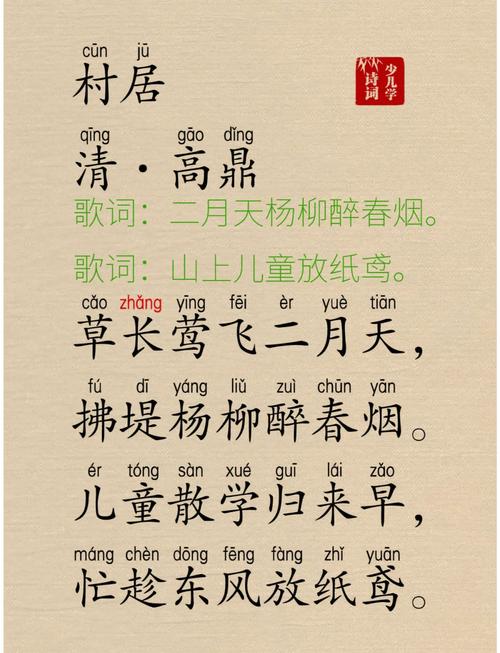 cūn jū
村居
少儿学
诗词
qīng gāo dǐng
清·高鼎
歌词：二月天杨柳醉春烟。
歌词：山上儿童放纸鸢。
cǎo zhǎng yīng fēi èr yuè tiān
草长莺飞二月天，
fú dī yáng liǔ zuì chūn yān
拂堤杨柳醉春烟。
ér tóng sàn xué guī lái zǎo
儿童散学归来早，
máng chèn dōng fēng fàng zhǐ yuān
忙趁东风放纸鸢。